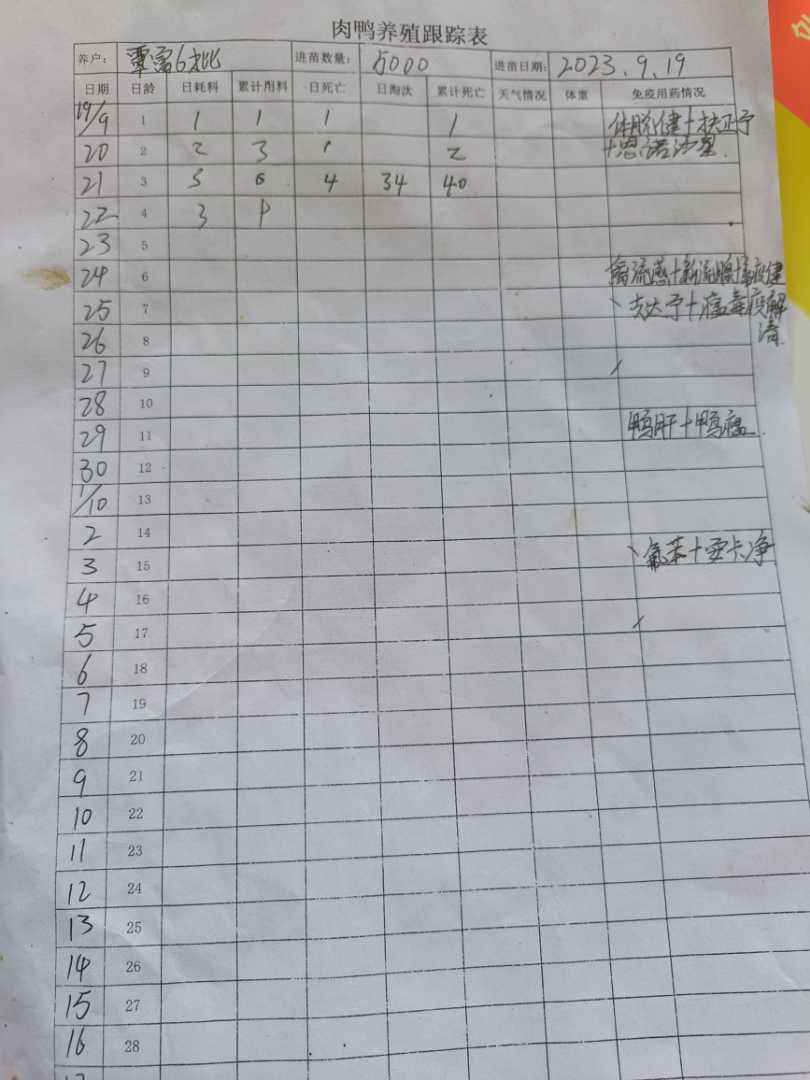 肉鸭养殖跟踪表
养户： 覃富6批 进苗数量： 5000 进苗日期： 2023.9.19
日期 日龄 日耗料 累计用料 日死亡 日淘汰 累计死亡 天气情况 体重 免疫用药情况
19/9 1 1 1 1 1 体脘健+扶正予
20 2 2 3 1 2 +恩诺沙星.
21 3 3 6 4 34 40
22 4 3 P
23 5
24 6 禽流感+新流腺+疫健
25 7 、支达予+病毒疫解
26 8 清.
27 9
28 10
29 11 鸭肝+鸭瘟.
30 12
1/10 13
2 14
3 15 、氟苯+金卡净
4 16
5 17
6 18
7 19
8 20
9 21
10 22
11 23
12 24
13 25
14 26
15 27
16 28